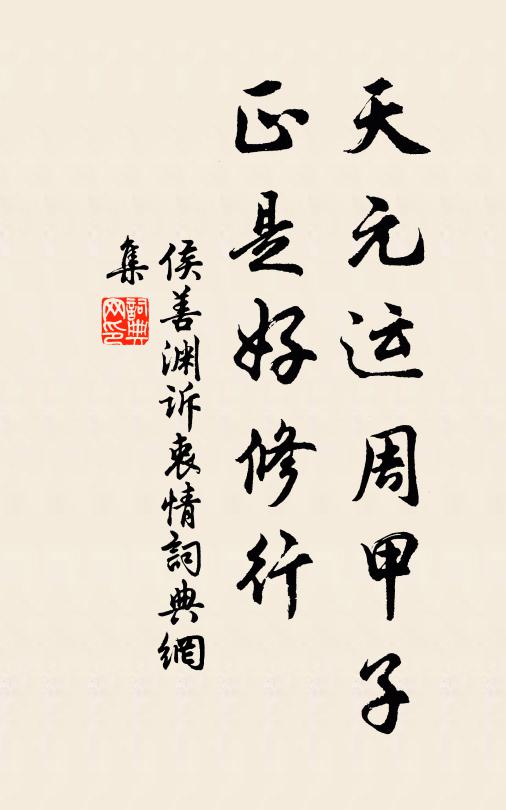 天元运周甲子
正是好修行
侯善渊诉衷情詞典網
集
詞典网印